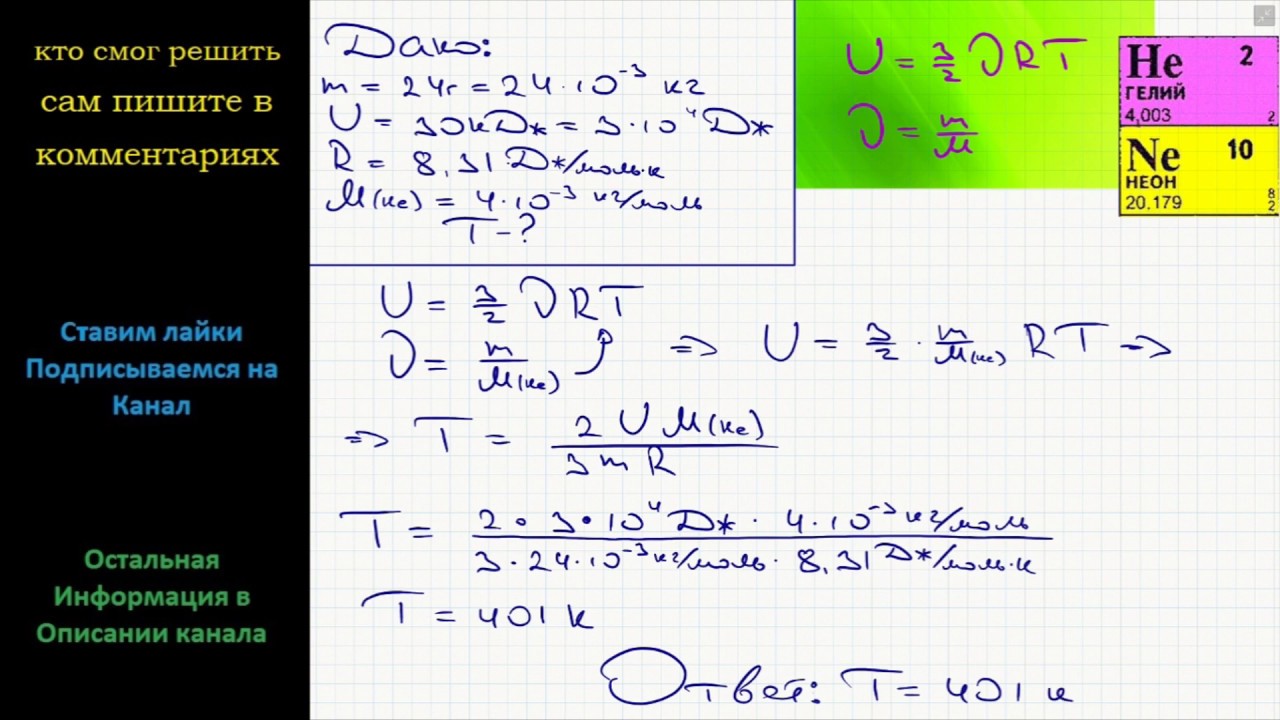 кто смог решить
сам пишите в
комментариях
Ставим лайки
Подписываемся на
Канал
Остальная
Информация в
Описании канала
Дано:
m = 24г = 24·10⁻³ кг
U = 30кДж = 3·10⁴ Дж
R = 8,31 Дж/моль·к
M(не) = 4·10⁻³ кг/моль
T - ?
U = 3/2 ν R T
ν = m/M
He 2
ГЕЛИЙ
4,003 2
Ne 10
НЕОН 8
20,179 2
U = 3/2 ν R T
ν = m/M(не) => U = 3/2 · m/M(не) R T =>
=> T = 2 U M(не) / 3 m R
T = 2·3·10⁴ Дж · 4·10⁻³ кг/моль / 3·24·10⁻³ кг/моль · 8,31 Дж/моль·к
T = 401 к
Ответ: T = 401 к